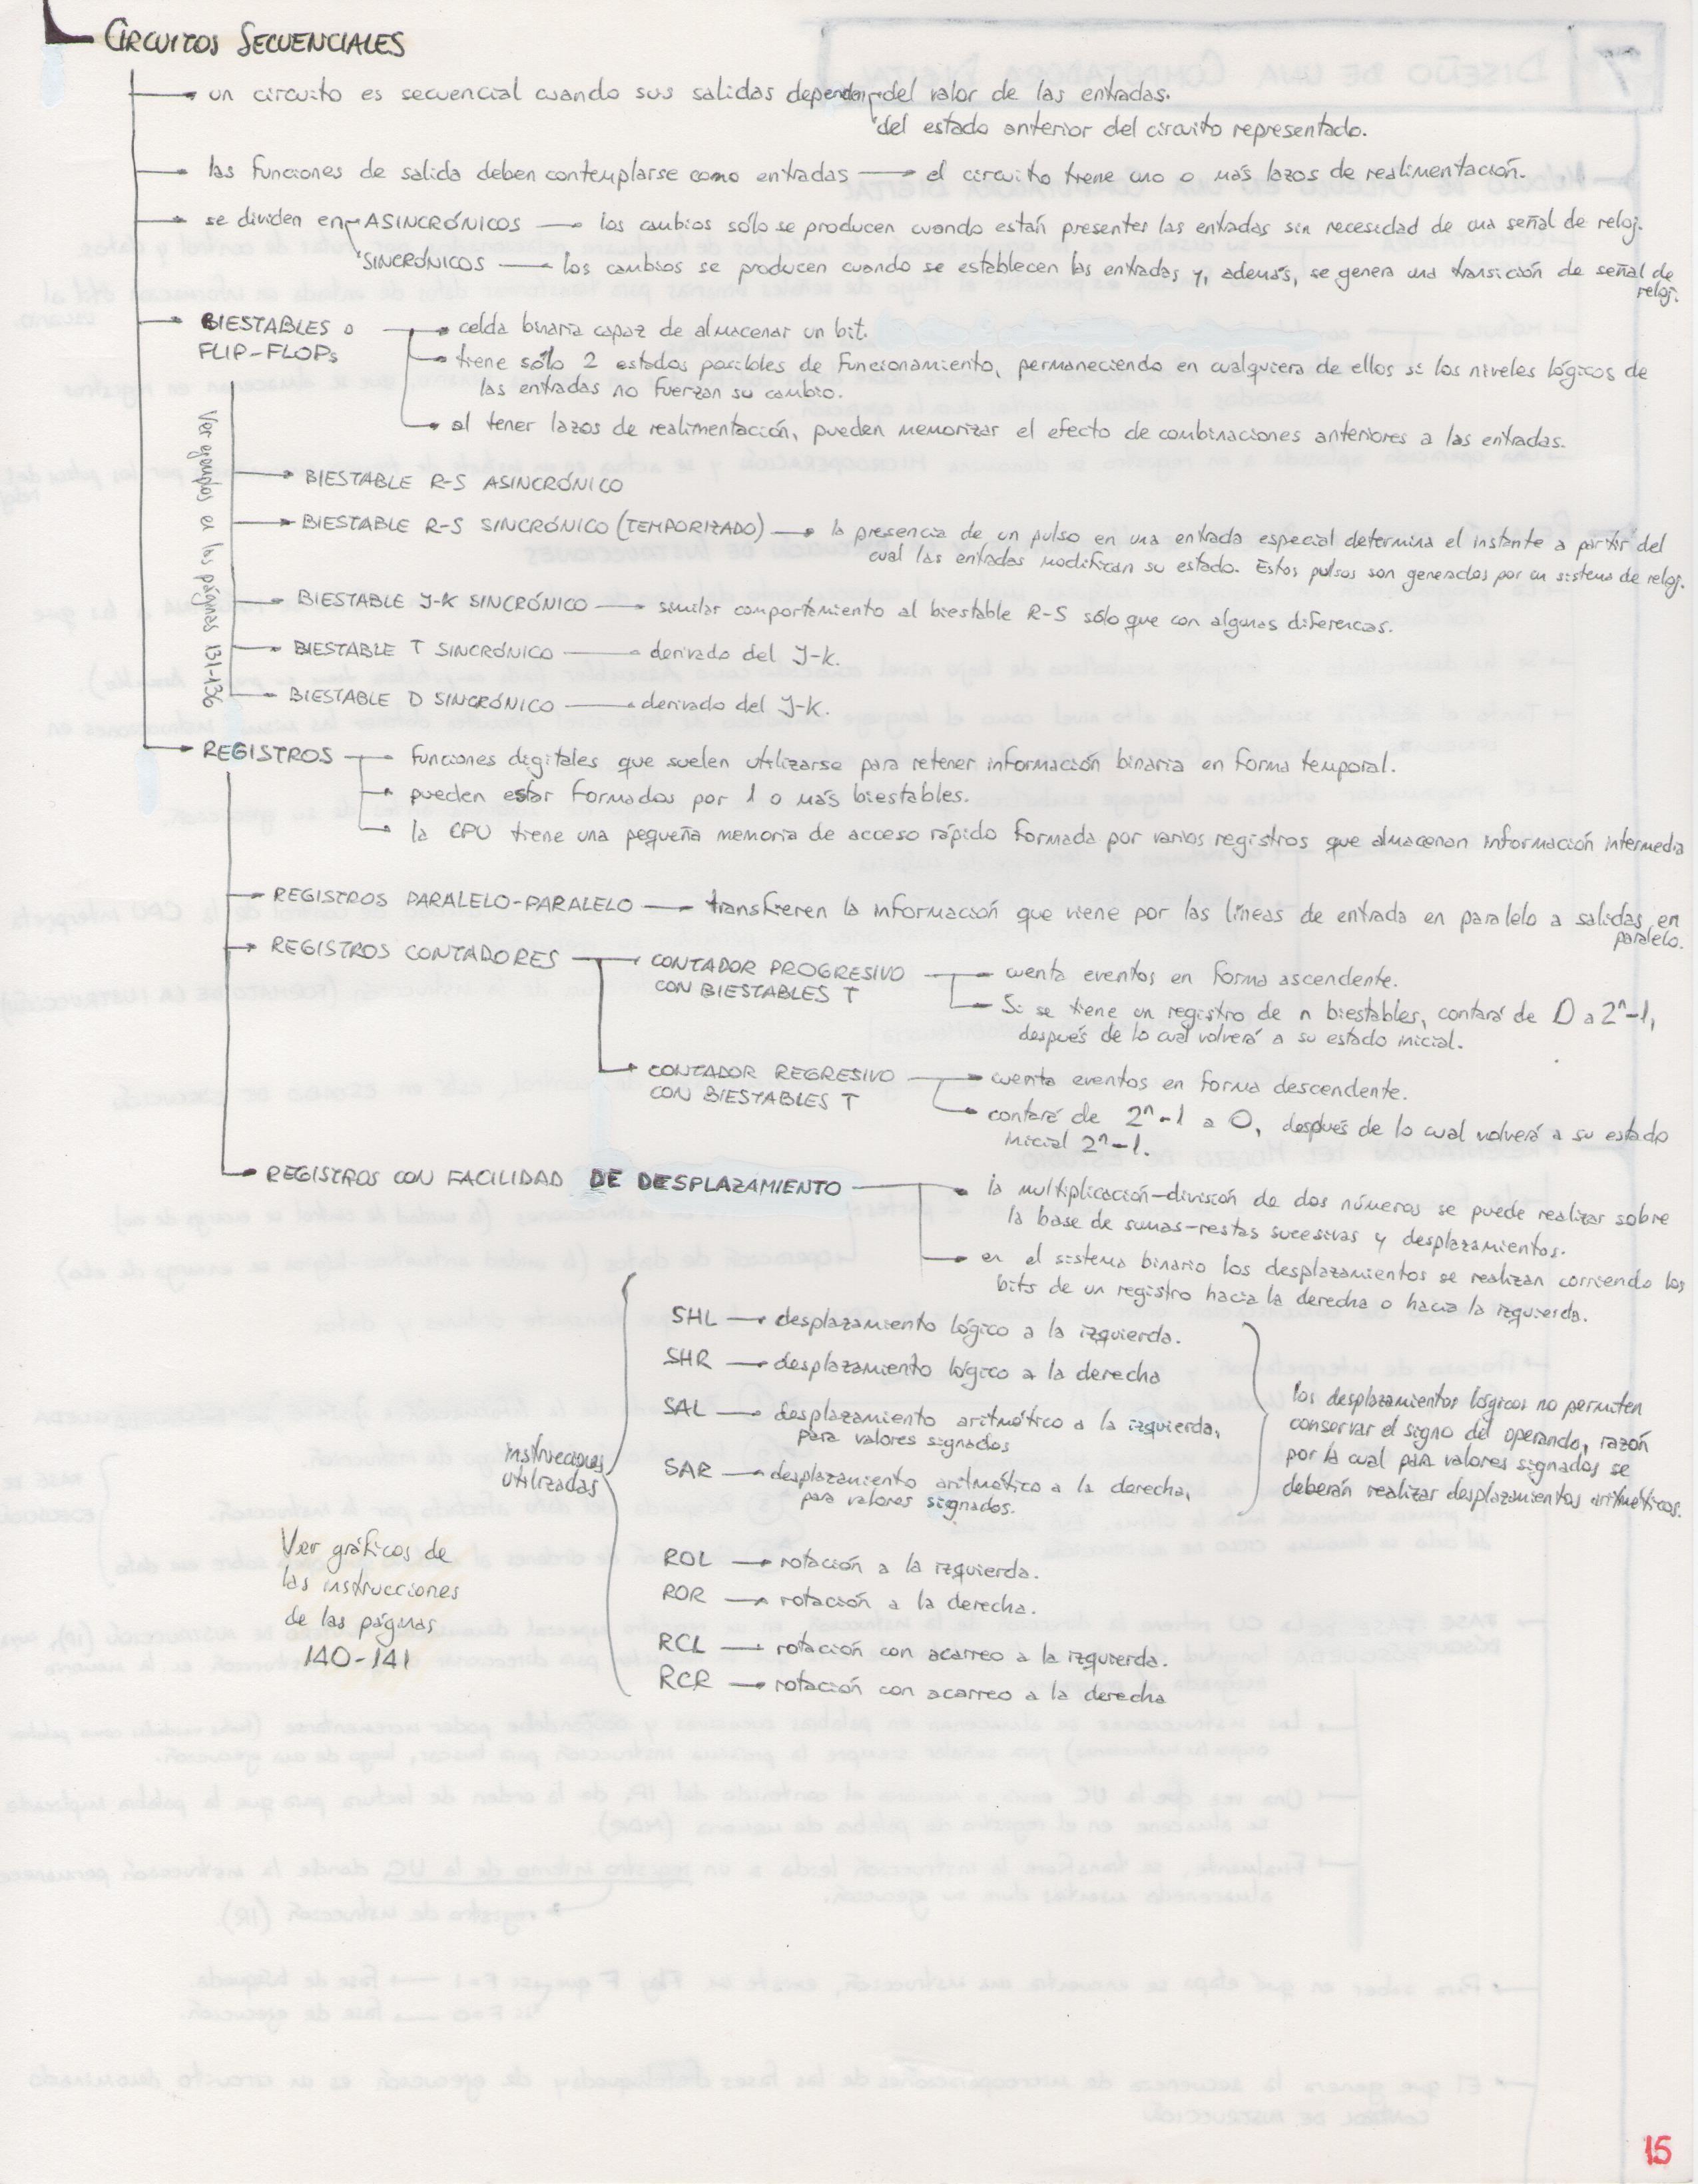 CIRCUITOS SECUENCIALES
un circuito es secuencial cuando sus salidas dependen del valor de las entradas.
del estado anterior del circuito representado.
las funciones de salida deben contemplarse como entradas → el circuito tiene uno o más lazos de realimentación.
se dividen en ASINCRÓNICOS → los cambios sólo se producen cuando están presentes las entradas sin necesidad de una señal de reloj.
SINCRÓNICOS → los cambios se producen cuando se establecen las entradas y, además, se genera una transición de señal de
reloj.
BIESTABLES o
FLIP-FLOPs
celda binaria capaz de almacenar un bit.
tiene sólo 2 estados posibles de funcionamiento, permaneciendo en cualquiera de ellos si los niveles lógicos de
las entradas no fuerzan su cambio.
al tener lazos de realimentación, pueden memorizar el efecto de combinaciones anteriores a las entradas.
Ver ejemplos en las páginas 131-136
BIESTABLE R-S ASINCRÓNICO
BIESTABLE R-S SINCRÓNICO (TEMPORIZADO) → la presencia de un pulso en una entrada especial determina el instante a partir del
cual las entradas modifican su estado. Estos pulsos son generados por un sistema de reloj.
BIESTABLE J-K SINCRÓNICO → similar comportamiento al biestable R-S sólo que con algunas diferencias.
BIESTABLE T SINCRÓNICO → derivado del J-K.
BIESTABLE D SINCRÓNICO → derivado del J-K.
REGISTROS → funciones digitales que suelen utilizarse para retener información binaria en forma temporal.
pueden estar formados por 1 o más biestables.
la CPU tiene una pequeña memoria de acceso rápido formada por varios registros que almacenan información intermedia
REGISTROS PARALELO-PARALELO → transfieren la información que viene por las líneas de entrada en paralelo a salidas en
paralelo.
REGISTROS CONTADORES
CONTADOR PROGRESIVO
CON BIESTABLES T
cuenta eventos en forma ascendente.
Si se tiene un registro de n biestables, contará de 0 a 2^n-1,
después de lo cual volverá a su estado inicial.
CONTADOR REGRESIVO
CON BIESTABLES T
cuenta eventos en forma descendente.
contará de 2^n-1 a 0, después de lo cual volverá a su estado
inicial 2^n-1.
REGISTROS CON FACILIDAD DE DESPLAZAMIENTO
la multiplicación-división de dos números se puede realizar sobre
la base de sumas-restas sucesivas y desplazamientos.
en el sistema binario los desplazamientos se realizan corriendo los
bits de un registro hacia la derecha o hacia la izquierda.
instrucciones
utilizadas
SHL → desplazamiento lógico a la izquierda.
SHR → desplazamiento lógico a la derecha
SAL → desplazamiento aritmético a la izquierda,
para valores signados
SAR → desplazamiento aritmético a la derecha,
para valores signados.
los desplazamientos lógicos no permiten
conservar el signo del operando, razón
por la cual para valores signados se
deberán realizar desplazamientos aritméticos.
ROL → rotación a la izquierda.
ROR → rotación a la derecha.
RCL → rotación con acarreo a la izquierda.
RCR → rotación con acarreo a la derecha
Ver gráficos de
las instrucciones
de las páginas
140-141
15